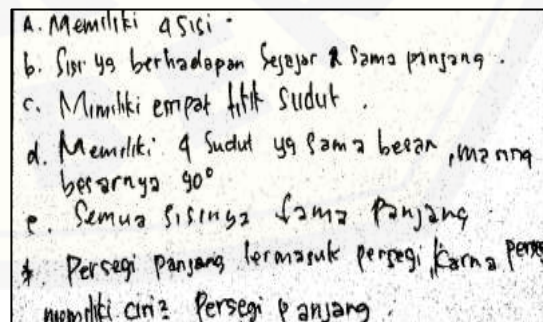 A. Memiliki 4 sisi.
b. Sisi yg berhadapan sejajar & sama panjang.
c. Mimiliki empat titik sudut.
d. Memiliki 4 sudut yg sama besar, ma
besarnya 90°
e. Semua sisinya sama panjang
*. Persegi panjang termasuk persegi, karna
memiliki ciri2 Persegi panjang.